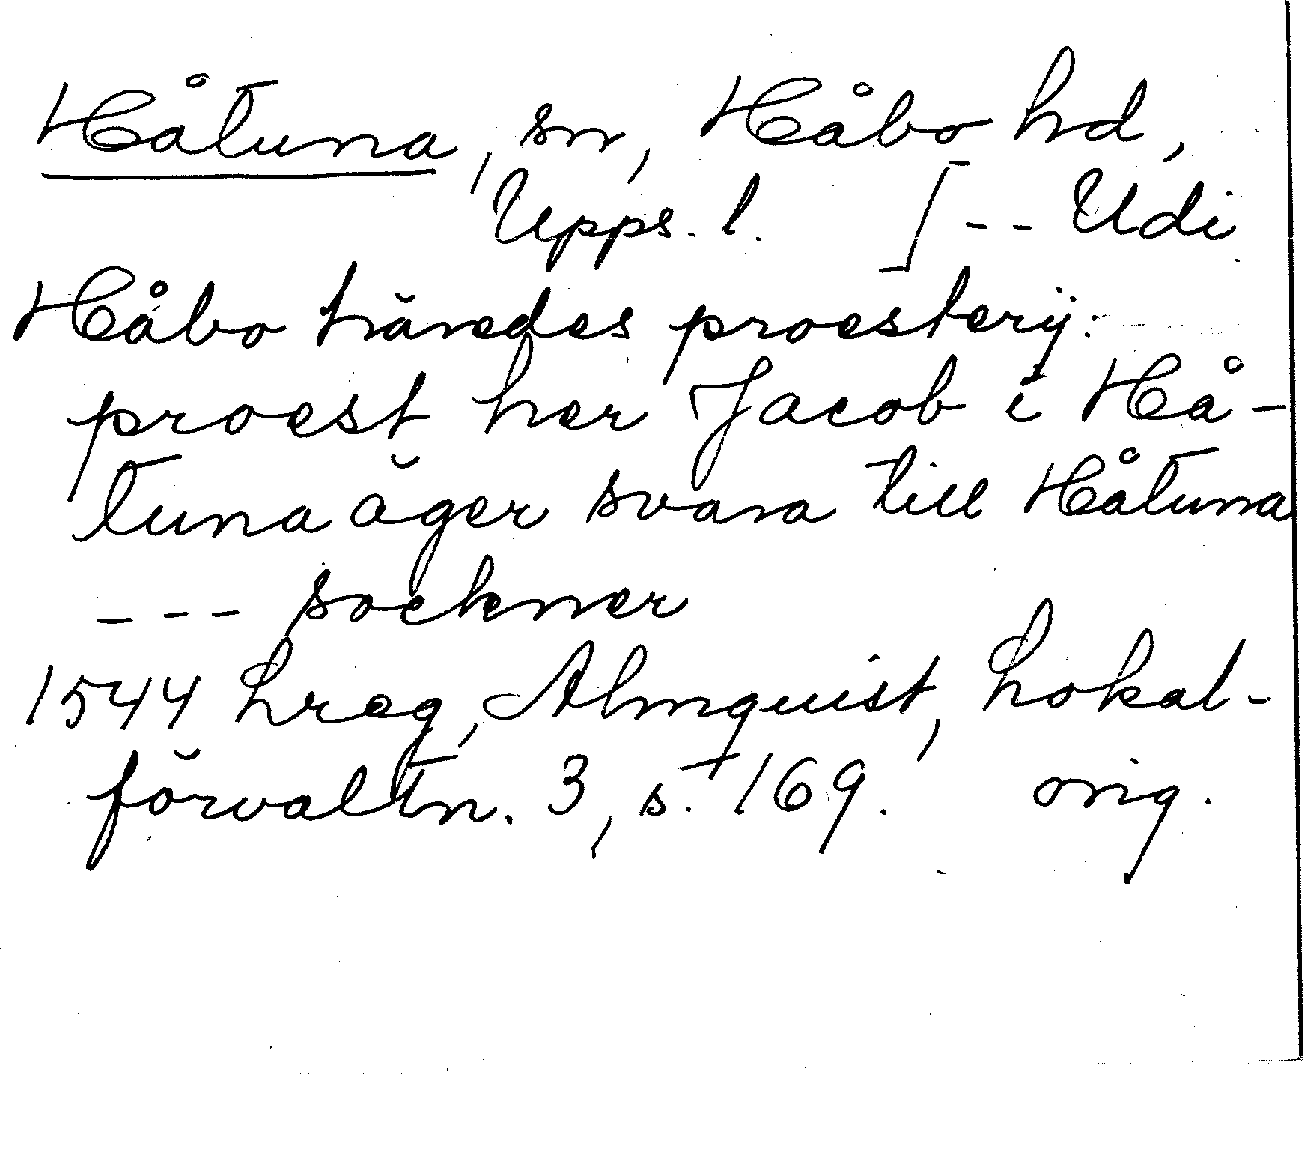 Håtuna, sn, Håbo hd,
Upps. l. [-- Udi
Håbo häredes proesterij:
proest her Jacob i Hå-
tuna äger svara till Håtuna
--- sockner
1544 Lreg, Almquist, Lokal-
förvaltn. 3, s. 169. orig.